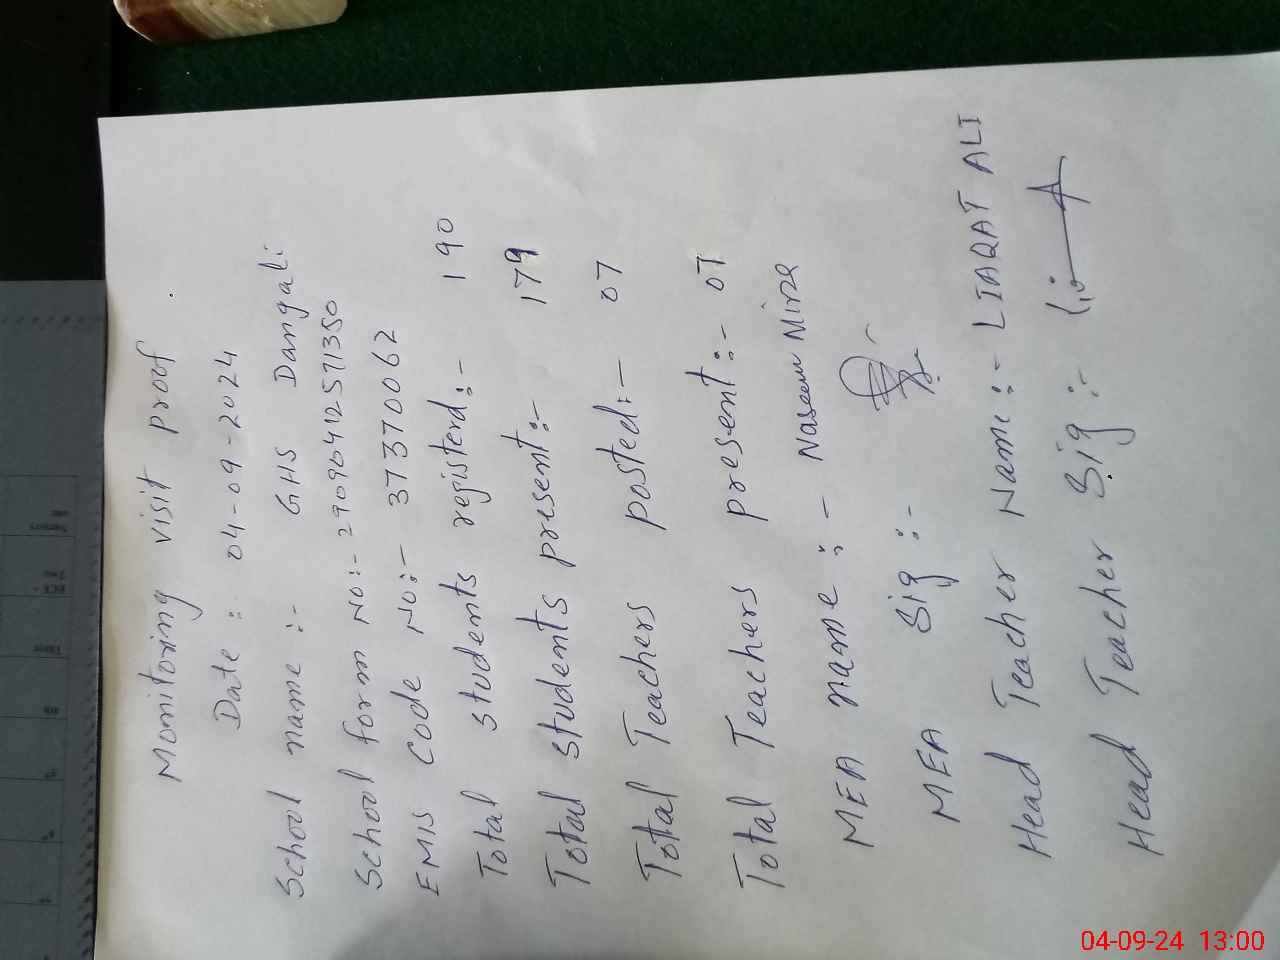 Monitoring visit proof
Date :- 04-09-2024
School name :- GHS Dangali
School form No:- 29090412571350
EMIS Code No:- 37370062
Total students registerd:- 190
Total students present:- 179
Total Teachers posted:- 07
Total Teachers present:- 07
MEA name :- Naseem Mirza
MEA Sig :-
Head Teacher Name:- LIAQAT ALI
Head Teacher Sig :-
04-09-24 13:00